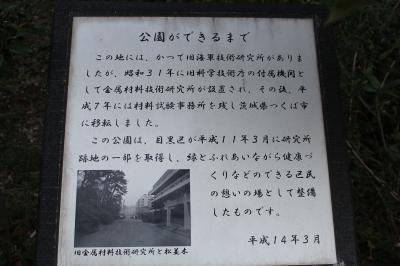 公園ができるまで
この地には、かつて旧海軍技術研究所がありま
したが、昭和31年に旧科学技術庁の付属機関と
して金属材料技術研究所が設置され、その後、平
成7年には材料試験事務所を残し茨城県つくば市
に移転しました。
この公園は、目黒区が平成11年3月に研究所
跡地の一部を取得し、緑とふれあいながら健康づ
くりなどのできる区民
の憩いの場として整備
したものです。
平成14年3月
旧金属材料技術研究所と松並木